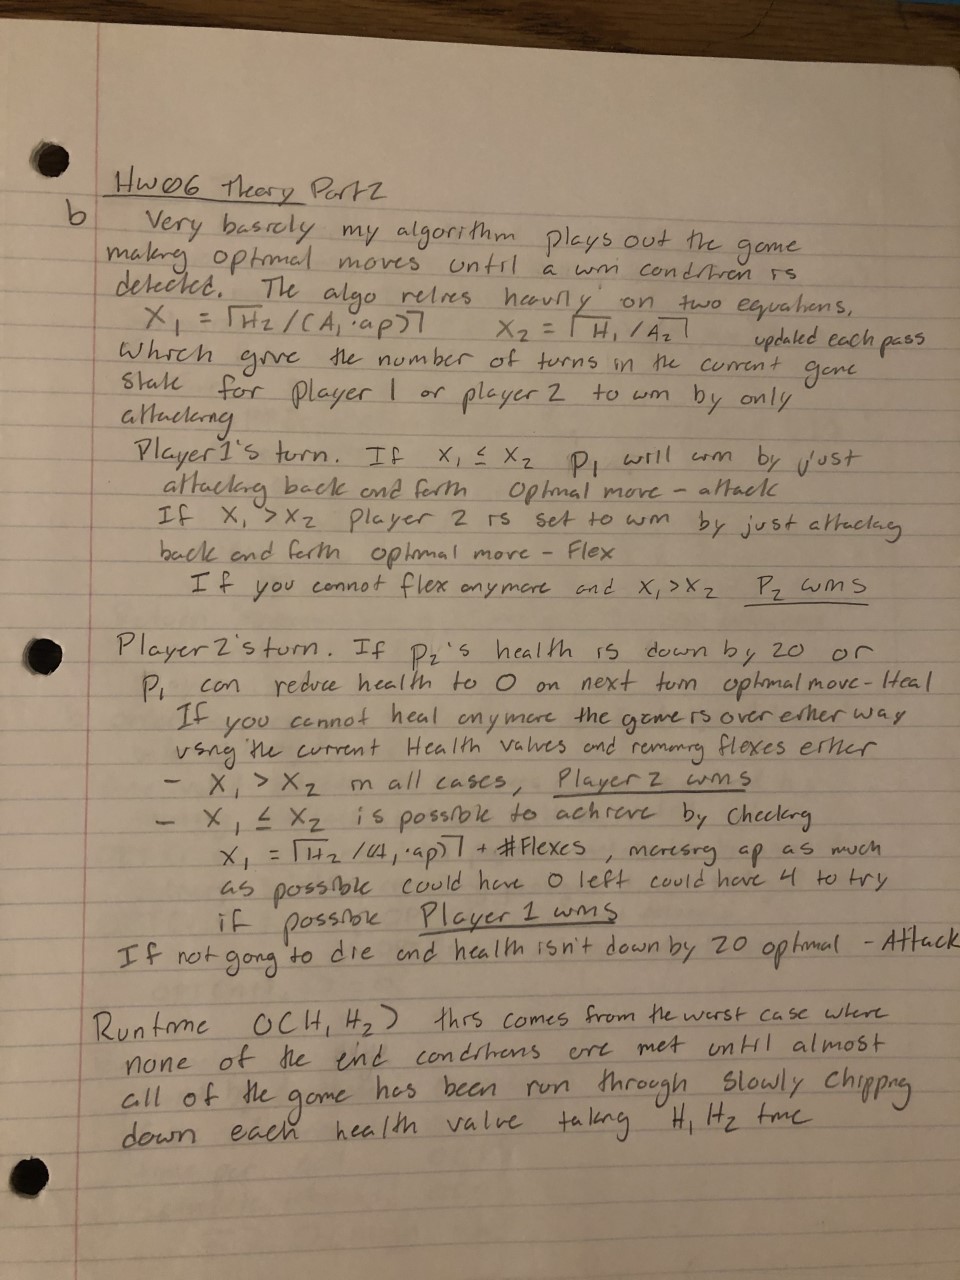 HW06 Theory Part 2
b Very basicly my algorithm plays out the game
making optimal moves until a win condition is
detected. The algo relies heavily on two equations,
X₁ = ⌈H₂/(A₁·ap)⌉ X₂ = ⌈H₁/A₂⌉ updated each pass
which give the number of turns in the current game
state for player 1 or player 2 to win by only
attacking
Player 1's turn. If X₁ ≤ X₂ P₁ will win by just
attacking back and forth optimal move - attack
If X₁ > X₂ player 2 is set to win by just attacking
back and forth optimal move - Flex
If you cannot flex anymore and X₁ > X₂ P₂ wins
Player 2's turn. If P₂'s health is down by 20 or
P₁ can reduce health to 0 on next turn optimal move - Heal
If you cannot heal anymore the game is over either way
using the current Health values and remaing flexes either
- X₁ > X₂ in all cases, Player 2 wins
- X₁ ≤ X₂ is possible to achieve by checking
X₁ = ⌈H₂/(A₁·ap)⌉ + #Flexes, incresing ap as much
as possible could have 0 left could have 4 to try
if possible Player 1 wins
If not going to die and health isn't down by 20 optimal - Attack
Runtime O(H₁ H₂) this comes from the worst case where
none of the end conditions are met until almost
all of the game has been run through slowly chipping
down each health value taking H₁ H₂ time